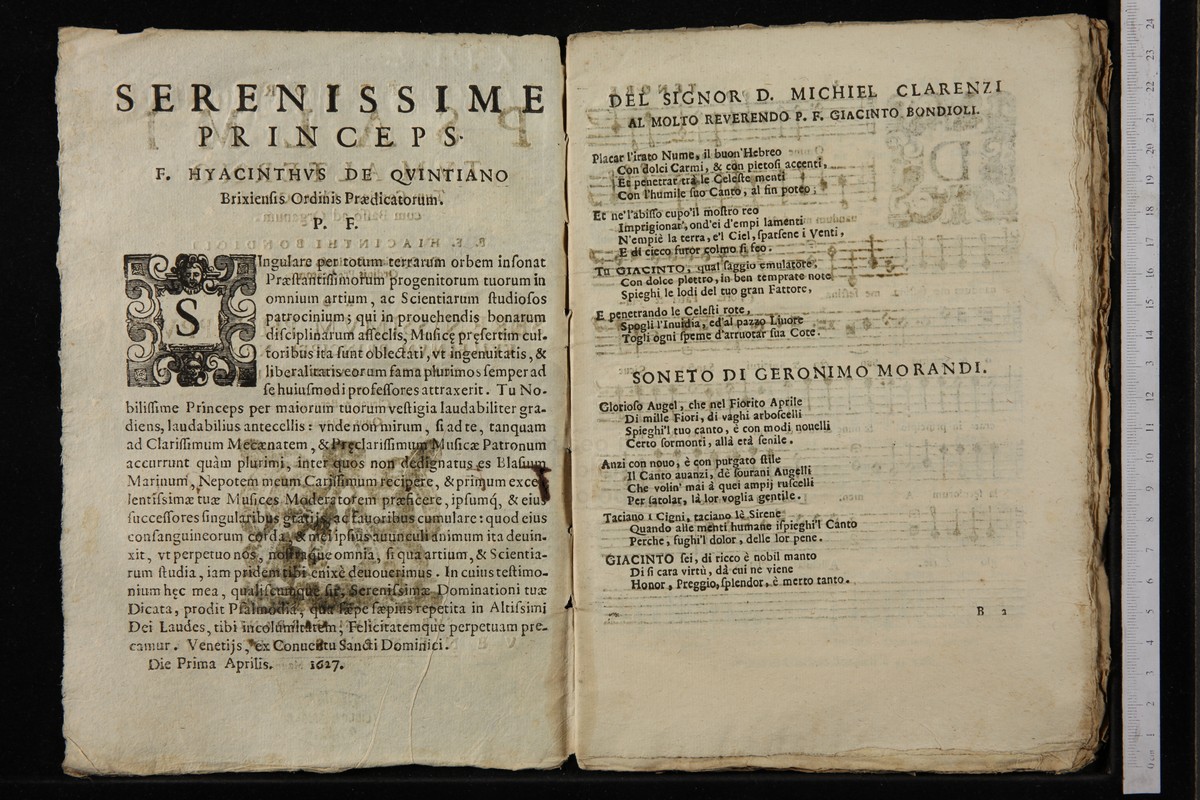 SERENISSIME
PRINCEPS.
F. HYACINTHVS DE QVINTIANO
Brixiensis Ordinis Prædicatorum.
P. F.
SIngulare per totum terrarum orbem insonat
Præstantissimorum progenitorum tuorum in
omnium artium, ac Scientiarum studiosos
patrocinium; qui in prouehendis bonarum
disciplinarum asseclis, Musicę pręsertim cul-
toribus ita sunt oblectati, vt ingenuitatis, &
liberalitatis eorum fama plurimos semper ad
se huiusmodi professores attraxerit. Tu No-
bilissime Princeps per maiorum tuorum vestigia laudabiliter gra-
diens, laudabilius antecellis: vnde non mirum, si ad te, tanquam
ad Clarissimum Mecænatem, & Pręclarissimum Musicæ Patronum
accurrunt quàm plurimi, inter quos non dedignatus es Blasium
Marinum, Nepotem meum Carissimum recipere, & primum excel
lentissimæ tuæ Musices Moderatorem præficere, ipsumq́, & eius
successores singularibus gratijs, ac fauoribus cumulare: quod eius
consanguineorum corda, & mei ipsius auunculi animum ita deuin-
xit, vt perpetuo nos, nostraque omnia, si qua artium, & Scientia-
rum studia, iam pridem tibi enixè deuouerimus. In cuius testimo-
nium hęc mea, qualiscumque sit, Serenissimæ Dominationi tuæ
Dicata, prodit Psalmodia, qua sæpe sæpius repetita in Altissimi
Dei Laudes, tibi incolumitatem, Felicitatemque perpetuam pre-
camur. Venetijs, ex Conuentu Sancti Dominici.
Die Prima Aprilis. 1627.
DEL SIGNOR D. MICHIEL CLARENZI
AL MOLTO REVERENDO P. F. GIACINTO BONDIOLI.
Placar l'irato Nume, il buon'Hebreo
Con dolci Carmi, & con pietosi accenti,
Et penetrar trà le Celeste menti
Con l'humile suo Canto, al fin poteo;
Et ne'l'abisso cupo'il mostro reo
Imprigionar', ond'ei d'empi lamenti
N'empiè la terra, e'l Ciel, sparsene i Venti,
E di cieco furor colmo si feo.
Tu GIACINTO, qual saggio emulatore,
Con dolce plettro, in ben temprate note
Spieghi le lodi del tuo gran Fattore,
E penetrando le Celesti rote,
Spogli l'Inuidia, ed'al pazzo Liuore
Togli ogni speme d'arruotar sua Cote.
SONETO DI GERONIMO MORANDI.
Glorioso Augel, che nel Fiorito Aprile
Di mille Fiori, di vaghi arboscelli
Spieghi'l tuo canto, è con modi nouelli
Certo sormonti, allà età senile.
Anzi con nouo, è con purgato stile
Il Canto auanzi, dè sourani Augelli
Che volin' mai à quei ampij ruscelli
Per satolar, là lor voglia gentile.
Taciano i Cigni, taciano lè Sirene
Quando alle menti humane ispieghi'l Canto
Perche, fughi'l dolor, delle lor pene.
GIACINTO sei, di ricco è nobil manto
Di sì cara virtù, dà cui ne viene
Honor, Preggio, splendor, è merto tanto.
B 2